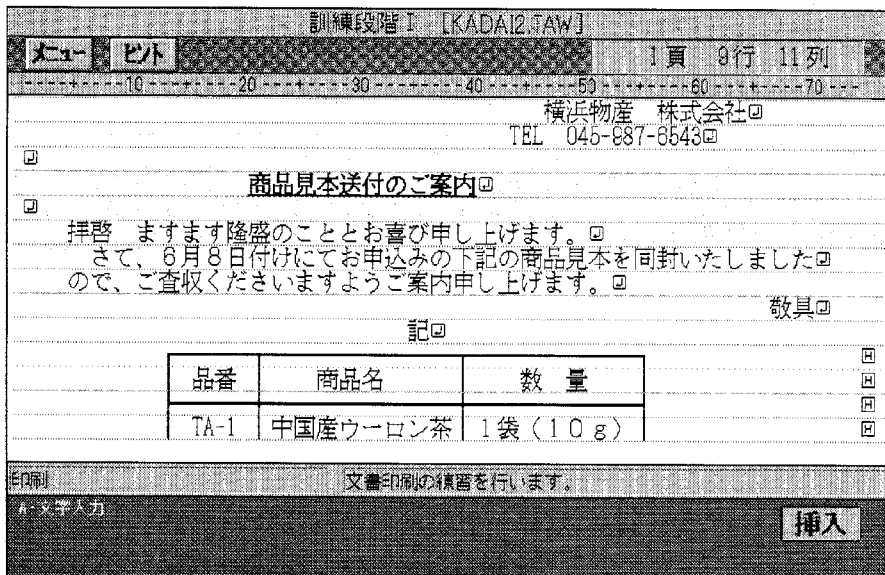 訓練段階Ⅰ [KADAI2.TAW]
メニュー ヒント 1頁 9行 11列
-----+----10----+----20----+----30----+----40----+----50----+----60----+----70---
横浜物産 株式会社
TEL 045-987-6543
商品見本送付のご案内
拝啓 ますます隆盛のこととお喜び申し上げます。
さて、6月8日付けにてお申込みの下記の商品見本を同封いたしました
ので、ご査収くださいますようご案内申し上げます。
敬具
記
品番 商品名 数 量
TA-1 中国産ウーロン茶 1袋(10g)
印刷 文書印刷の練習を行います。
A-文字入力
挿入